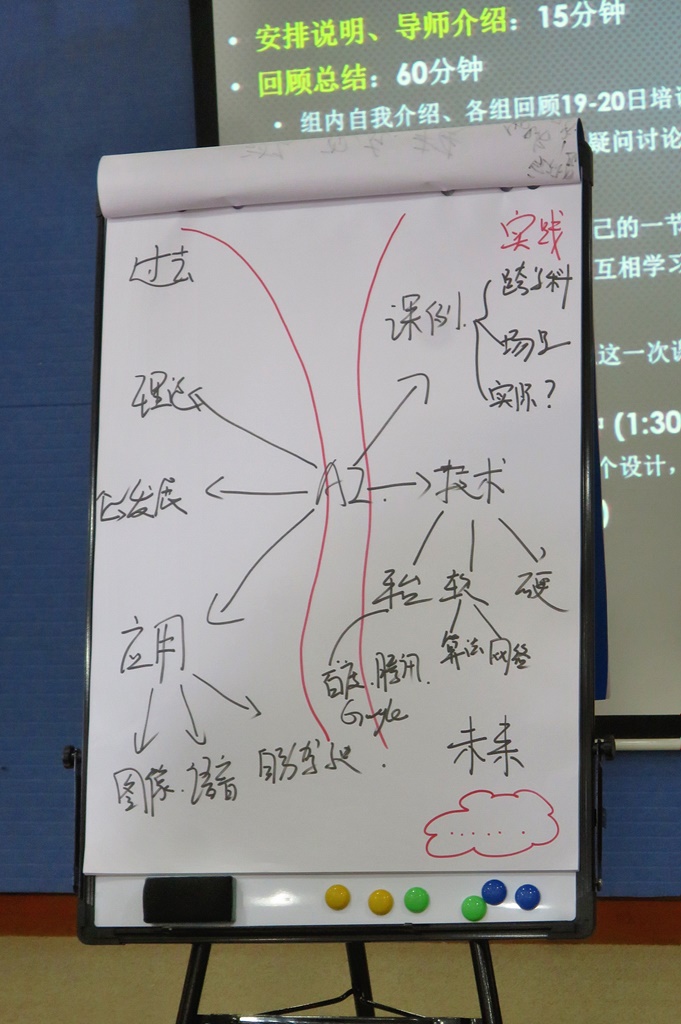 • 安排说明、导师介绍：15分钟
• 回顾总结：60分钟
• 组内自我介绍、各组回顾19-20日培训
疑问讨论
己的一节
互相学习
这一次课
(1:30
个设计，
)
实践
过去
课例
跨学科
场景
实际？
理论
AI
发展
技术
平台
软
硬
应用
算法
网络
百度、腾讯
Google
图像、语音
自然
未来
......